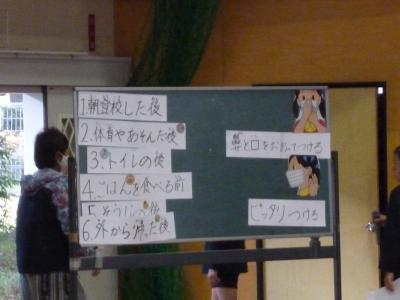 1.朝登校した後
2.体育やあそんだ後
3.トイレの後
4.ごはんを食べる前
5.そうじの後
6.外から帰った後
鼻と口をおおってつける
ピッタリつける